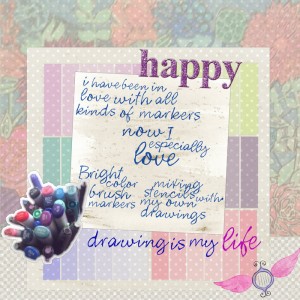 happy
i have been in
love with all
kinds of markers
now I
especially
love
Bright
color
brush
markers
mixing
stencils with
my own
drawings
drawing is my life